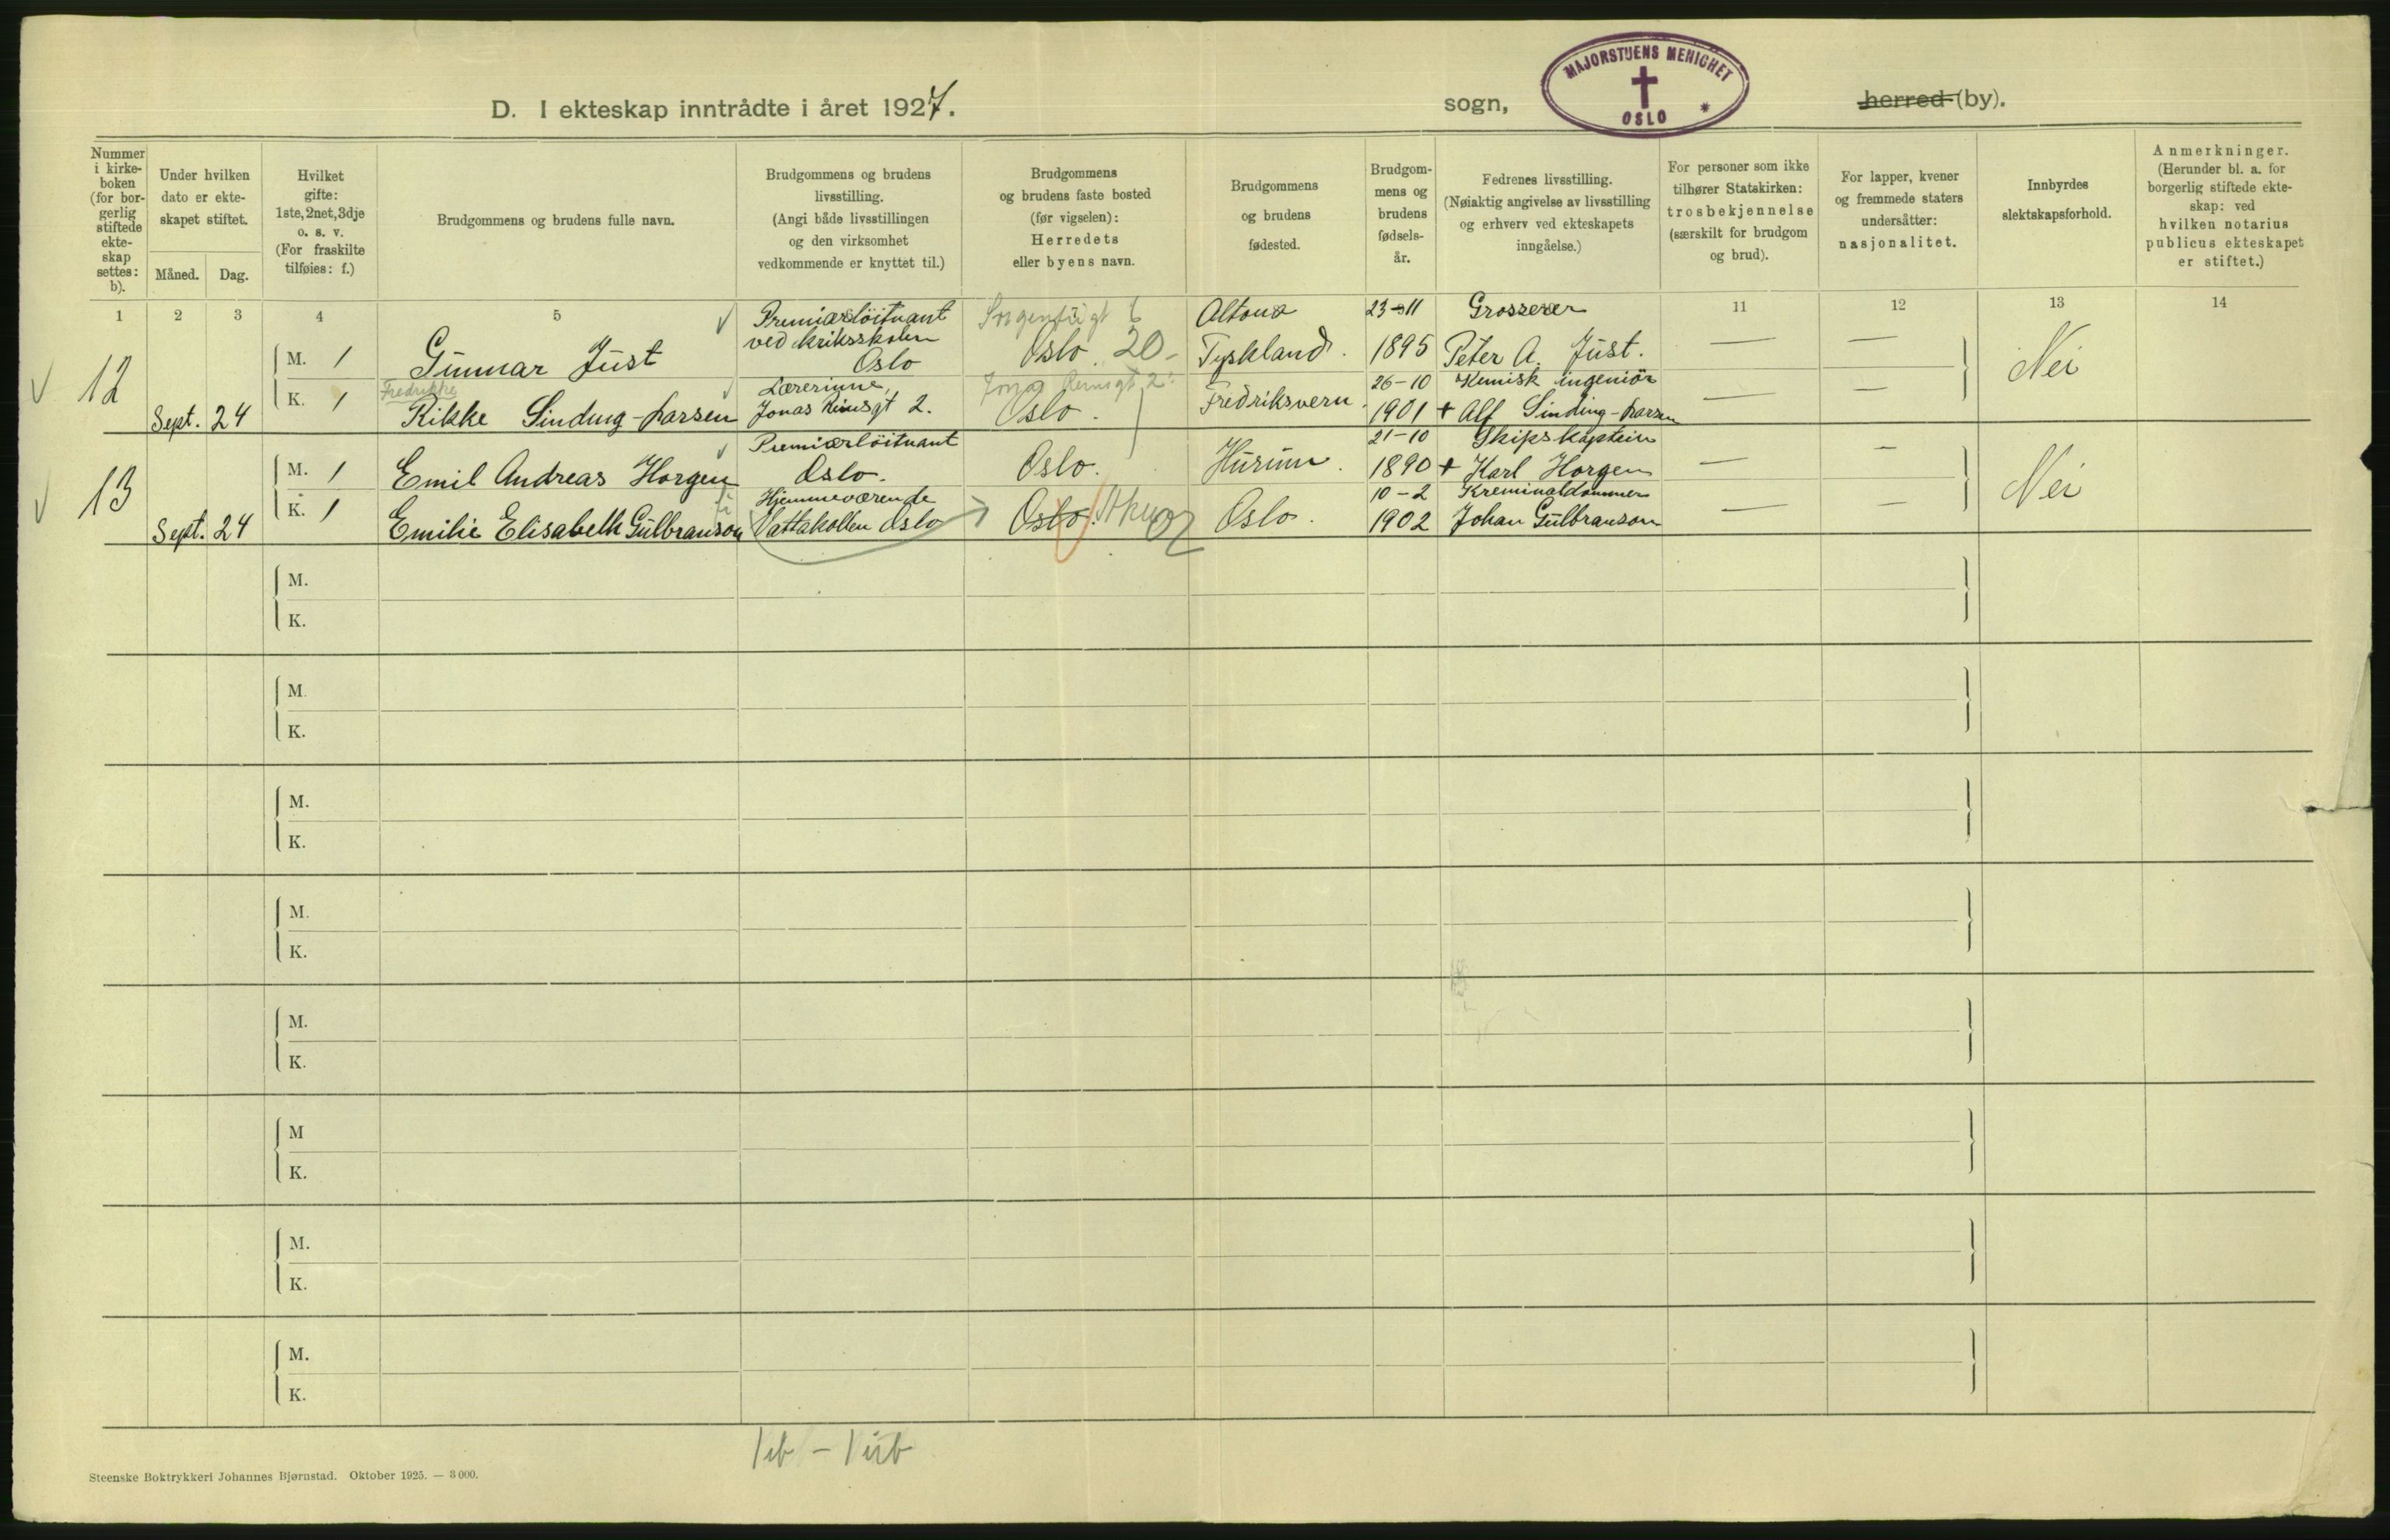 D. I ekteskap inntrådte i året 1927.
sogn,
MAJORSTUENS MENIGHET
OSLO
herred (by).
Nummer i kirke-boken (for bor-gerlig stiftede ekte-skap settes: b).
Under hvilken dato er ekte-skapet stiftet.
Måned. Dag.
Hvilket gifte: 1ste, 2net, 3dje o. s. v. (For fraskilte tilføies: f.)
Brudgommens og brudens fulle navn.
Brudgommens og brudens livsstilling. (Angi både livsstillingen og den virksomhet vedkommende er knyttet til.)
Brudgommens og brudens faste bosted (før vigselen): Herredets eller byens navn.
Brudgommens og brudens fødested.
Brudgom-mens og brudens fødsels-år.
Fedrenes livsstilling. (Nøiaktig angivelse av livsstilling og erhverv ved ekteskapets inngåelse.)
For personer som ikke tilhører Statskirken: trosbekjennelse (særskilt for brudgom og brud).
For lapper, kvener og fremmede staters undersåtter: nasjonalitet.
Innbyrdes slektskapsforhold.
Anmerkninger. (Herunder bl. a. for borgerlig stiftede ekte-skap: ved hvilken notarius publicus ekteskapet er stiftet.)
1 2 3 4 5 11 12 13 14
Premiærløitnant Sorgenfrigt 6 Altona 23-11 Grosserer
ved Krigsskolen
12 M. 1 Gunnar Just Oslo Oslo 20- Tyskland. 1895 Peter A. Just. — — Nei
Fredrikke Lærerinne, Jonas Reinsgt 2. 26-10 Kemisk ingeniør
Sept. 24 K. 1 Rikke Sinding-Larsen Jonas Reinsgt 2. Oslo. Fredriksvern. 1901 + Alf Sinding-Larsen — —
Premiærløitnant 21-10 Skipskaptein
13 M. 1 Emil Andreas Horgen Oslo. Oslo. Hurum. 1890 + Karl Horgen — — Nei
Hjemmeværende 10-2 Kreminaldommer
Sept. 24 K. 1 Emilie Elisabeth Gulbranson Vattakollen Oslo Oslo. Aker Oslo. 1902 Johan Gulbranson — —
M.
K.
M.
K.
M.
K.
M.
K.
M.
K.
M
K.
M.
K.
M.
K.
Steenske Boktrykkeri Johannes Bjørnstad. Oktober 1925. — 3 000.